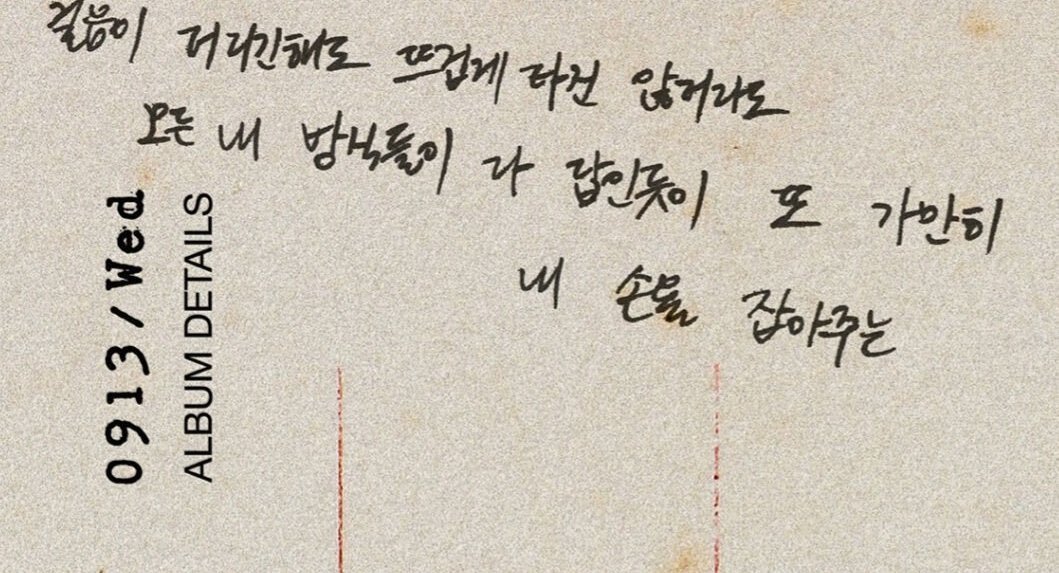 걸음이 더디긴해도 뜨겁게 타진 않더라도
모든 내 방식들이 다 답인듯이 또 가만히
내 손을 잡아주는
0913/Wed
ALBUM DETAILS